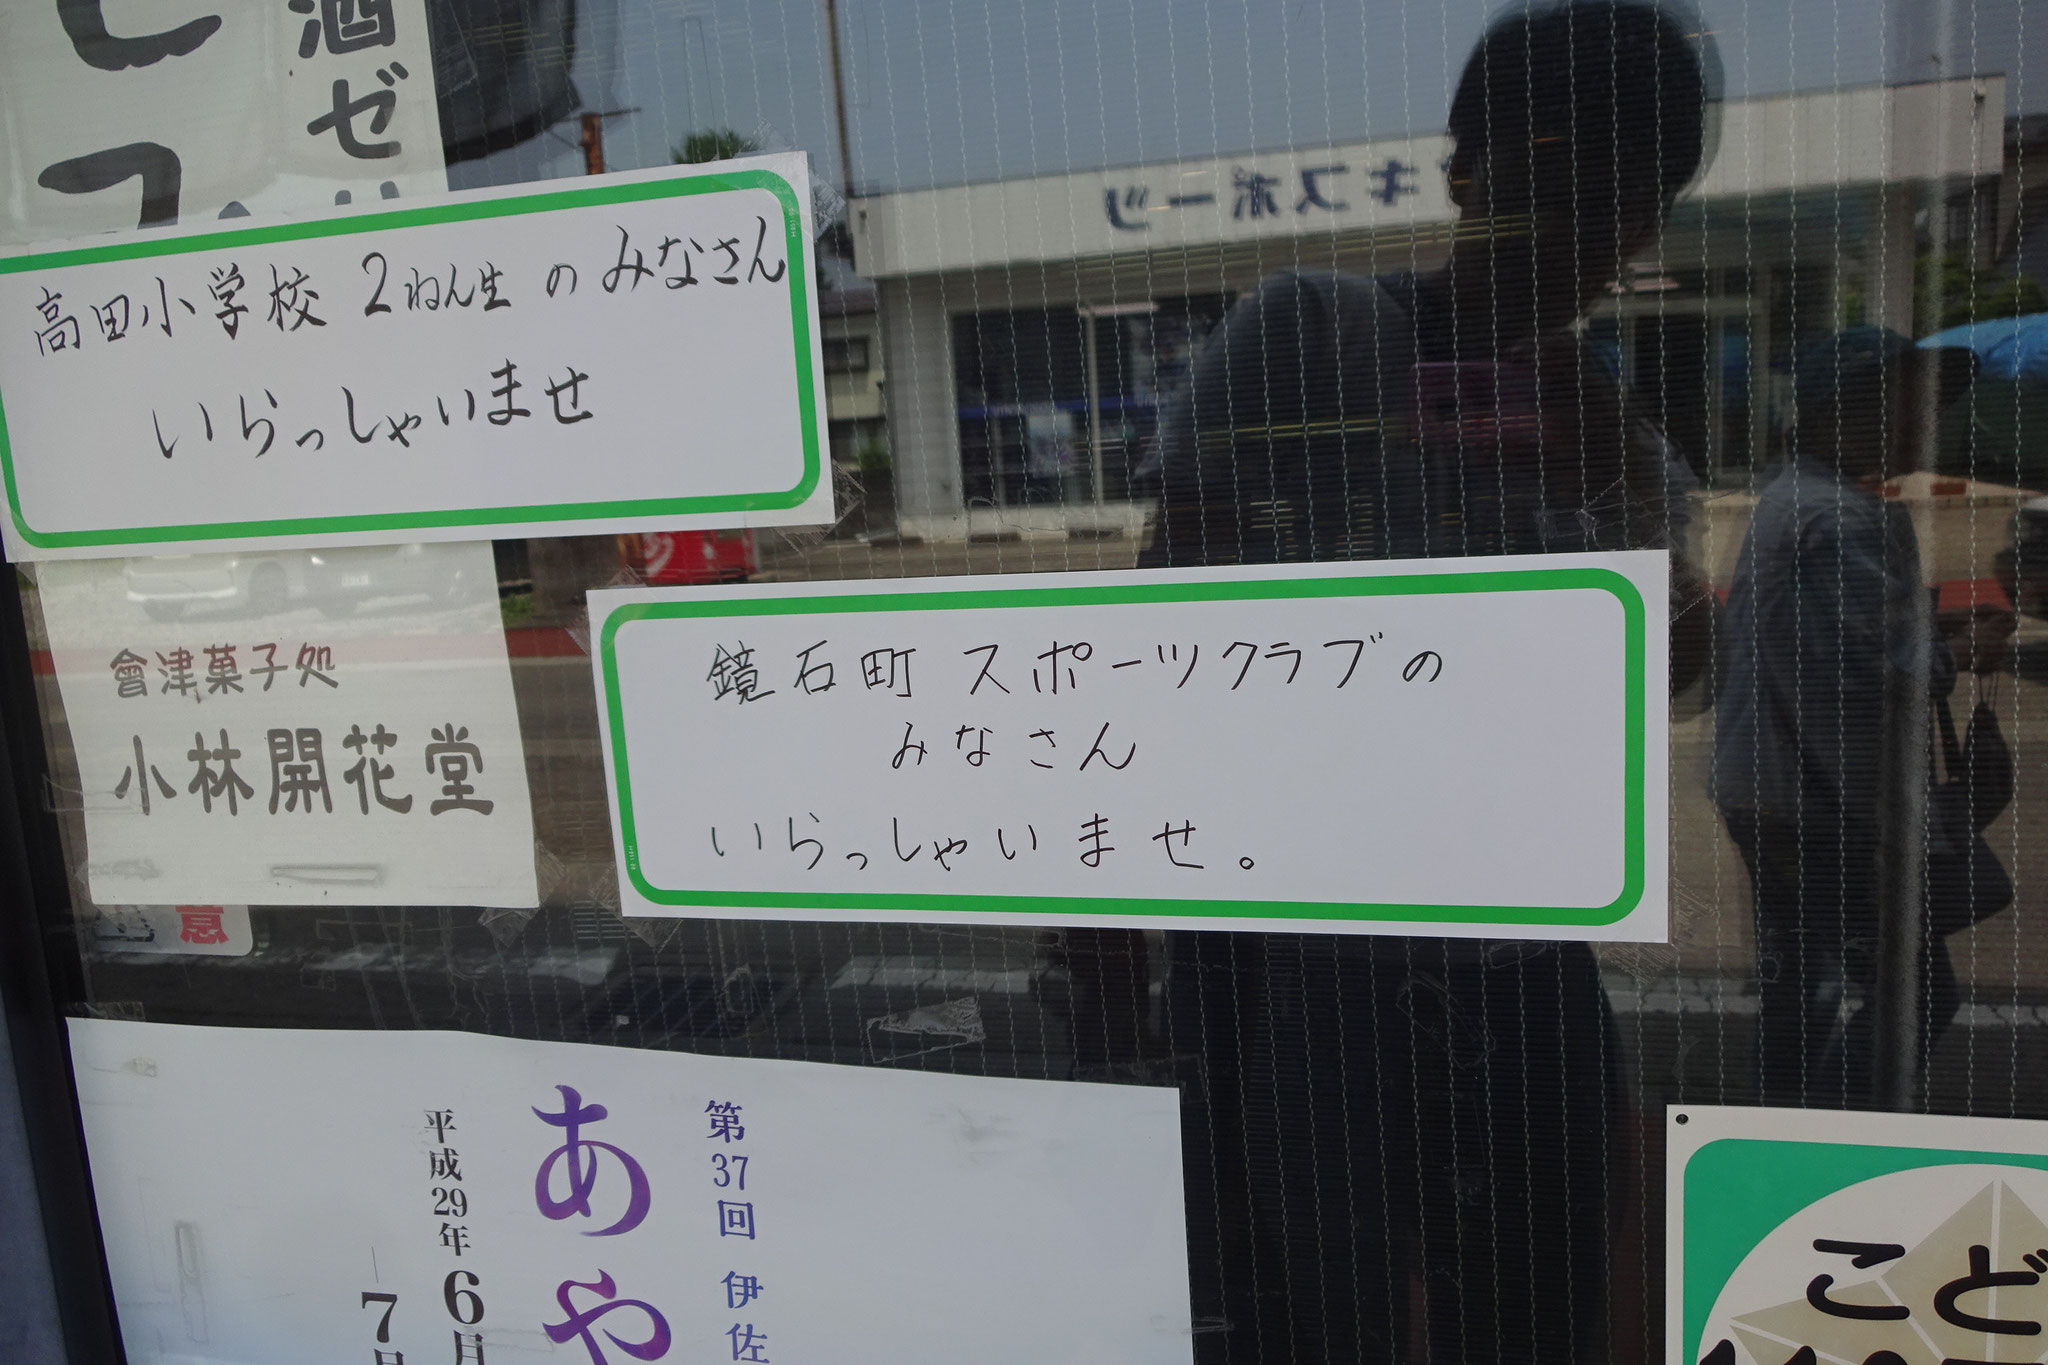 酒ゼリ
高田小学校 2ねん生 の みなさん
いらっしゃいませ
會津菓子処
小林開花堂
鏡石町 スポーツクラブの
みなさん
いらっしゃいませ。
キスポーツ
第37回 伊佐
あや
平成29年6月
7月
こど